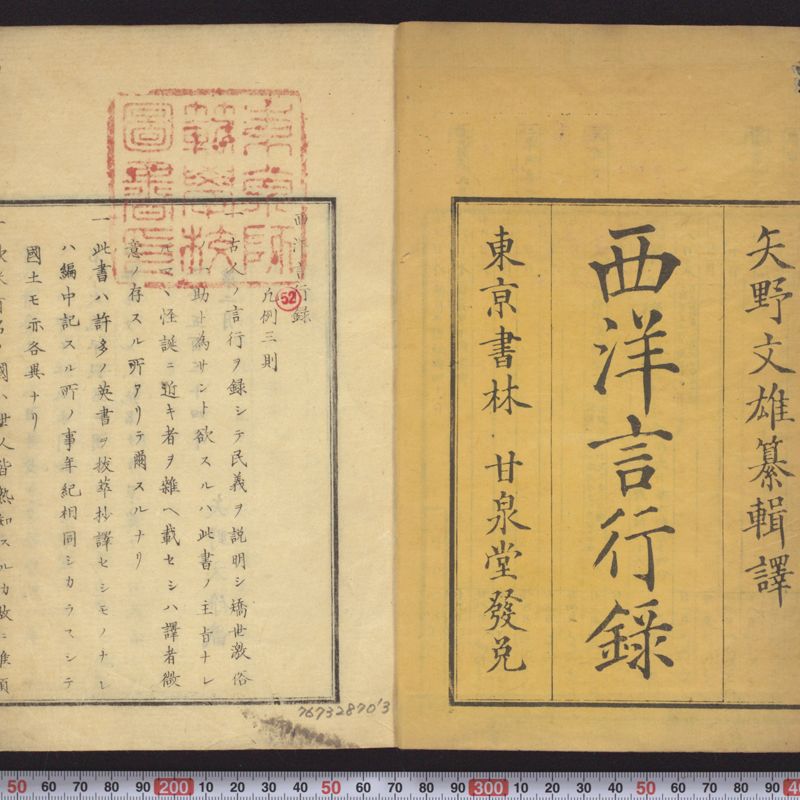 矢野文雄纂輯譯
西洋言行錄
東京書林 甘泉堂發兌
西洋言行錄
凡例三則
一古人ノ言行ヲ錄シテ民義ヲ說明シ矯世激俗
助ト為サント欲スルハ此書ノ主旨ナレ
怪誕ニ近キ者ヲ雜ヘ載セシハ譯者微
意ノ存スル所アリテ爾スルナリ
一此書ハ許多ノ英書ヲ拔萃抄譯セシモノナレ
ハ編中記スル所ノ事年紀相同シカラスシテ
國土モ亦各異ナリ
東京師範學校圖書印
52
7673287013
50 60 70 80 90 200 10 20 30 40 50 60 70 80 90 300 10 20 30 40 50 60 70 80 90